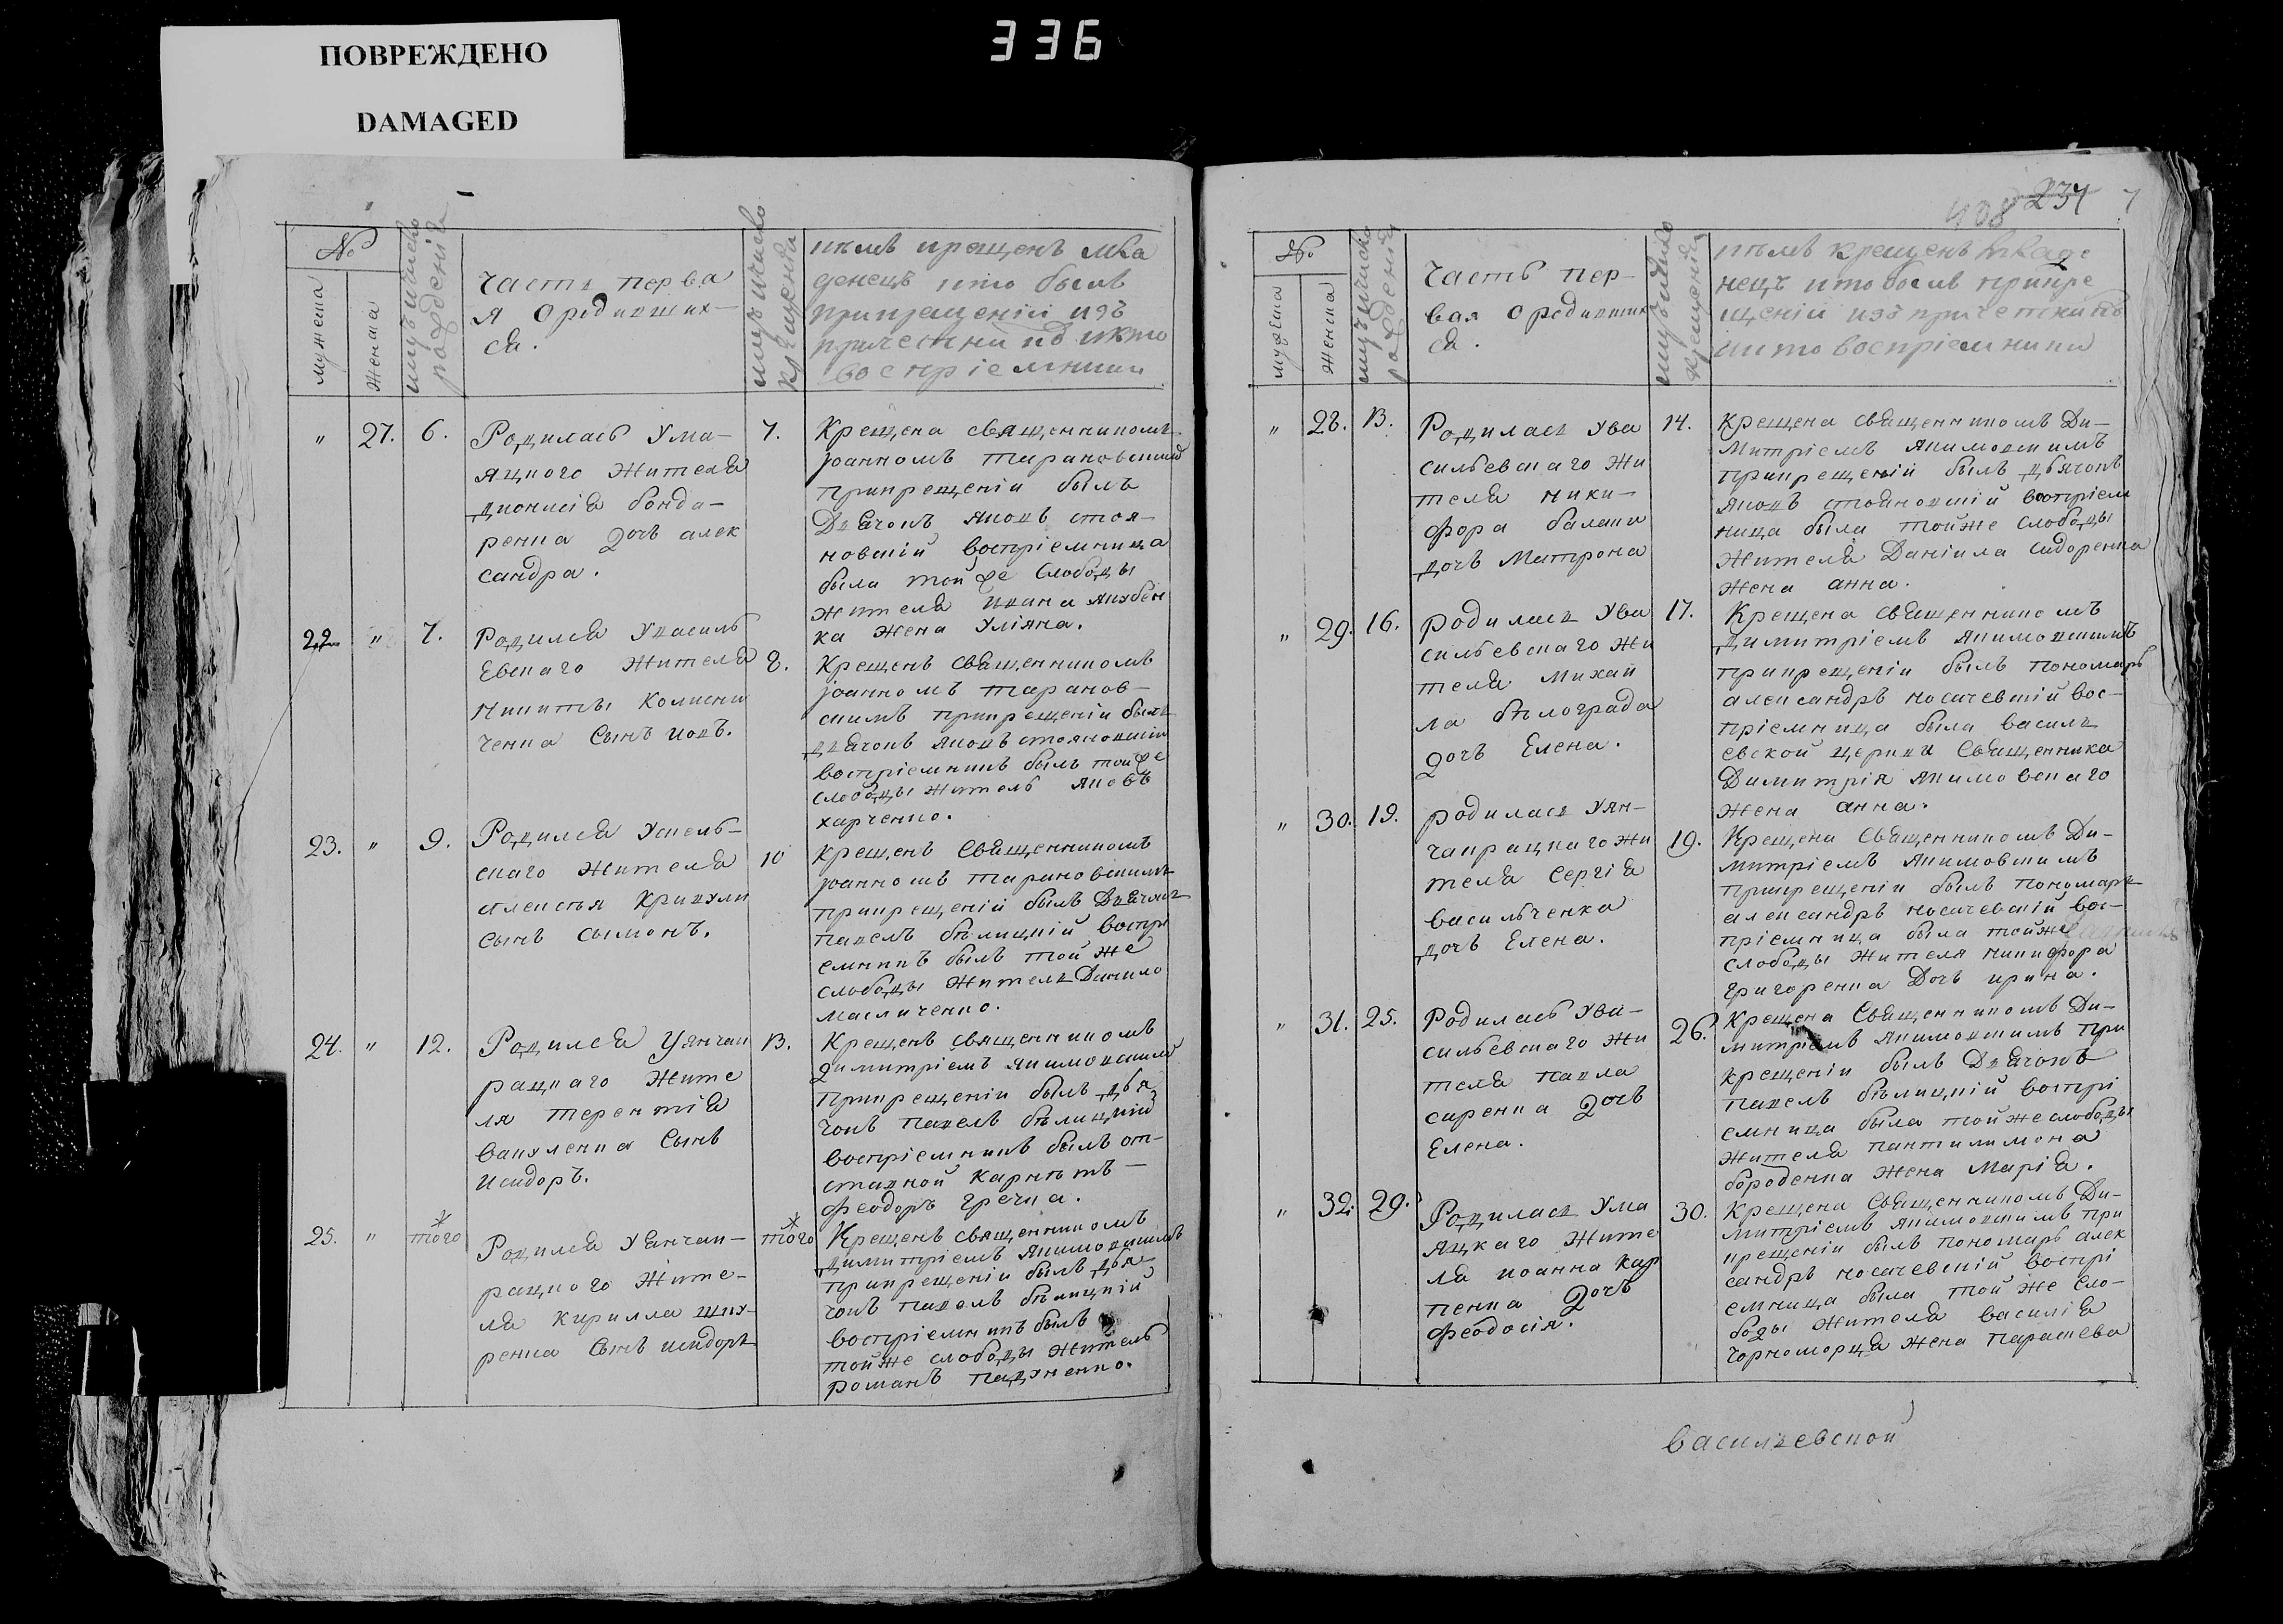 ПОВРЕЖДЕНО
DAMAGED
336
№
мужеска
женска
мцъ и число
рождения
часть перва
я о родивших
ся.
мцъ и число
крещения
кемъ крещенъ мла
денецъ и кто былъ
при крещеніи изъ
причетниковъ и кто
воспріемники
" 27. 6.
Родилась у ма-
яцкого жителя
дионисія бонда-
ренка дочь алек
сандра.
7.
Крещена священникомъ
јоанномъ тарановскимъ
при крещеніи былъ
Дьячокъ яковъ стоя-
новскій воспріемница
была той же слободы
жителя ивана
ка жена Уліяна.
22 " 7.
Родился у василь
евскаго жителя
никиты колисни
ченка сынъ иовъ.
8.
Крещенъ священникомъ
јоанномъ таранов-
скимъ при крещеніи былъ
дьячокъ яковъ стояновскій
воспріемникъ былъ той же
слободы житель яковъ
харченко.
23. " 9.
Родился у
скаго жителя
алексѣя
сынъ сымонъ.
10
Крещенъ священникомъ
јоанномъ тарановскимъ
при крещеніи былъ Дьячокъ
павелъ бѣлицкій воспрі
емникъ былъ той же
слободы житель Данило
масличенко.
24. " 12.
Родился у янчак
рацкаго жите
ля терентія
вакуленка сынъ
исидоръ.
13.
Крещенъ священникомъ
димитріемъ якимовскимъ
при крещеніи былъ дья
чокъ павелъ бѣлицкій
воспріемникъ былъ от-
ставной
феодоръ гречка.
25. " того
Родился у янчак-
рацкого жите-
ля кирилла
ренка сынъ исидоръ
того
Крещенъ священникомъ
димитріемъ якимовскимъ
при крещеніи былъ дья
чокъ павелъ бѣлицкій
воспріемникъ былъ
той же слободы житель
романъ
408 234
№
мужеска
женска
мцъ и число
рождения
Часть пер-
вая о родивших
ся.
мцъ и число
крещения
кемъ крещенъ младе
нецъ и кто былъ при кре
щеніи изъ причетниковъ
и кто воспріемники
" 28. 13.
Родилась у ва
сильевскаго жи
теля ники-
фора балаки
дочь Матрона
14.
Крещена священникомъ Ди-
митріемъ якимовскимъ
при крещеніи былъ дьячокъ
яковъ стояновскій воспріем
ница была той же слободы
жителя Даніила сидоренка
жена анна.
" 29. 16.
родилась у ва
сильевскаго жи
теля михай
ла бѣлограда
дочь Елена.
17.
Крещена священникомъ
Димитріемъ якимовскимъ
при крещеніи былъ пономарь
александръ носачевскій вос-
пріемница была василь
евской церкви священника
Димитрія якимовскаго
жена анна.
" 30. 19.
родилась у ян-
чакрацкаго жи
теля сергія
васильченка
дочь Елена.
19.
Крещена священникомъ Ди-
митріемъ якимовскимъ
при крещеніи былъ пономарь
александръ носачевскій вос-
пріемница была той же
слободы жителя никифора
григоренка Дочь ирина.
" 31. 25.
Родилась у ва-
сильевскаго жи
теля павла
сиренка дочь
Елена.
26.
Крещена священникомъ Ди-
митріемъ якимовскимъ при
крещеніи былъ Дьячокъ
павелъ бѣлицкій воспрі
емница была той же слободы
жителя пантилимона
бороденка жена Марія.
" 32. 29.
Родилась у ма
яцкаго жите
ля иоанна кар
пенка дочь
феодосія.
30.
Крещена священникомъ Ди-
митріемъ якимовскимъ при
крещеніи былъ пономарь алек
сандръ носачевскій воспрі
емница была той же сло-
боды жителя василія
чорноморца жена параскева
васильевской